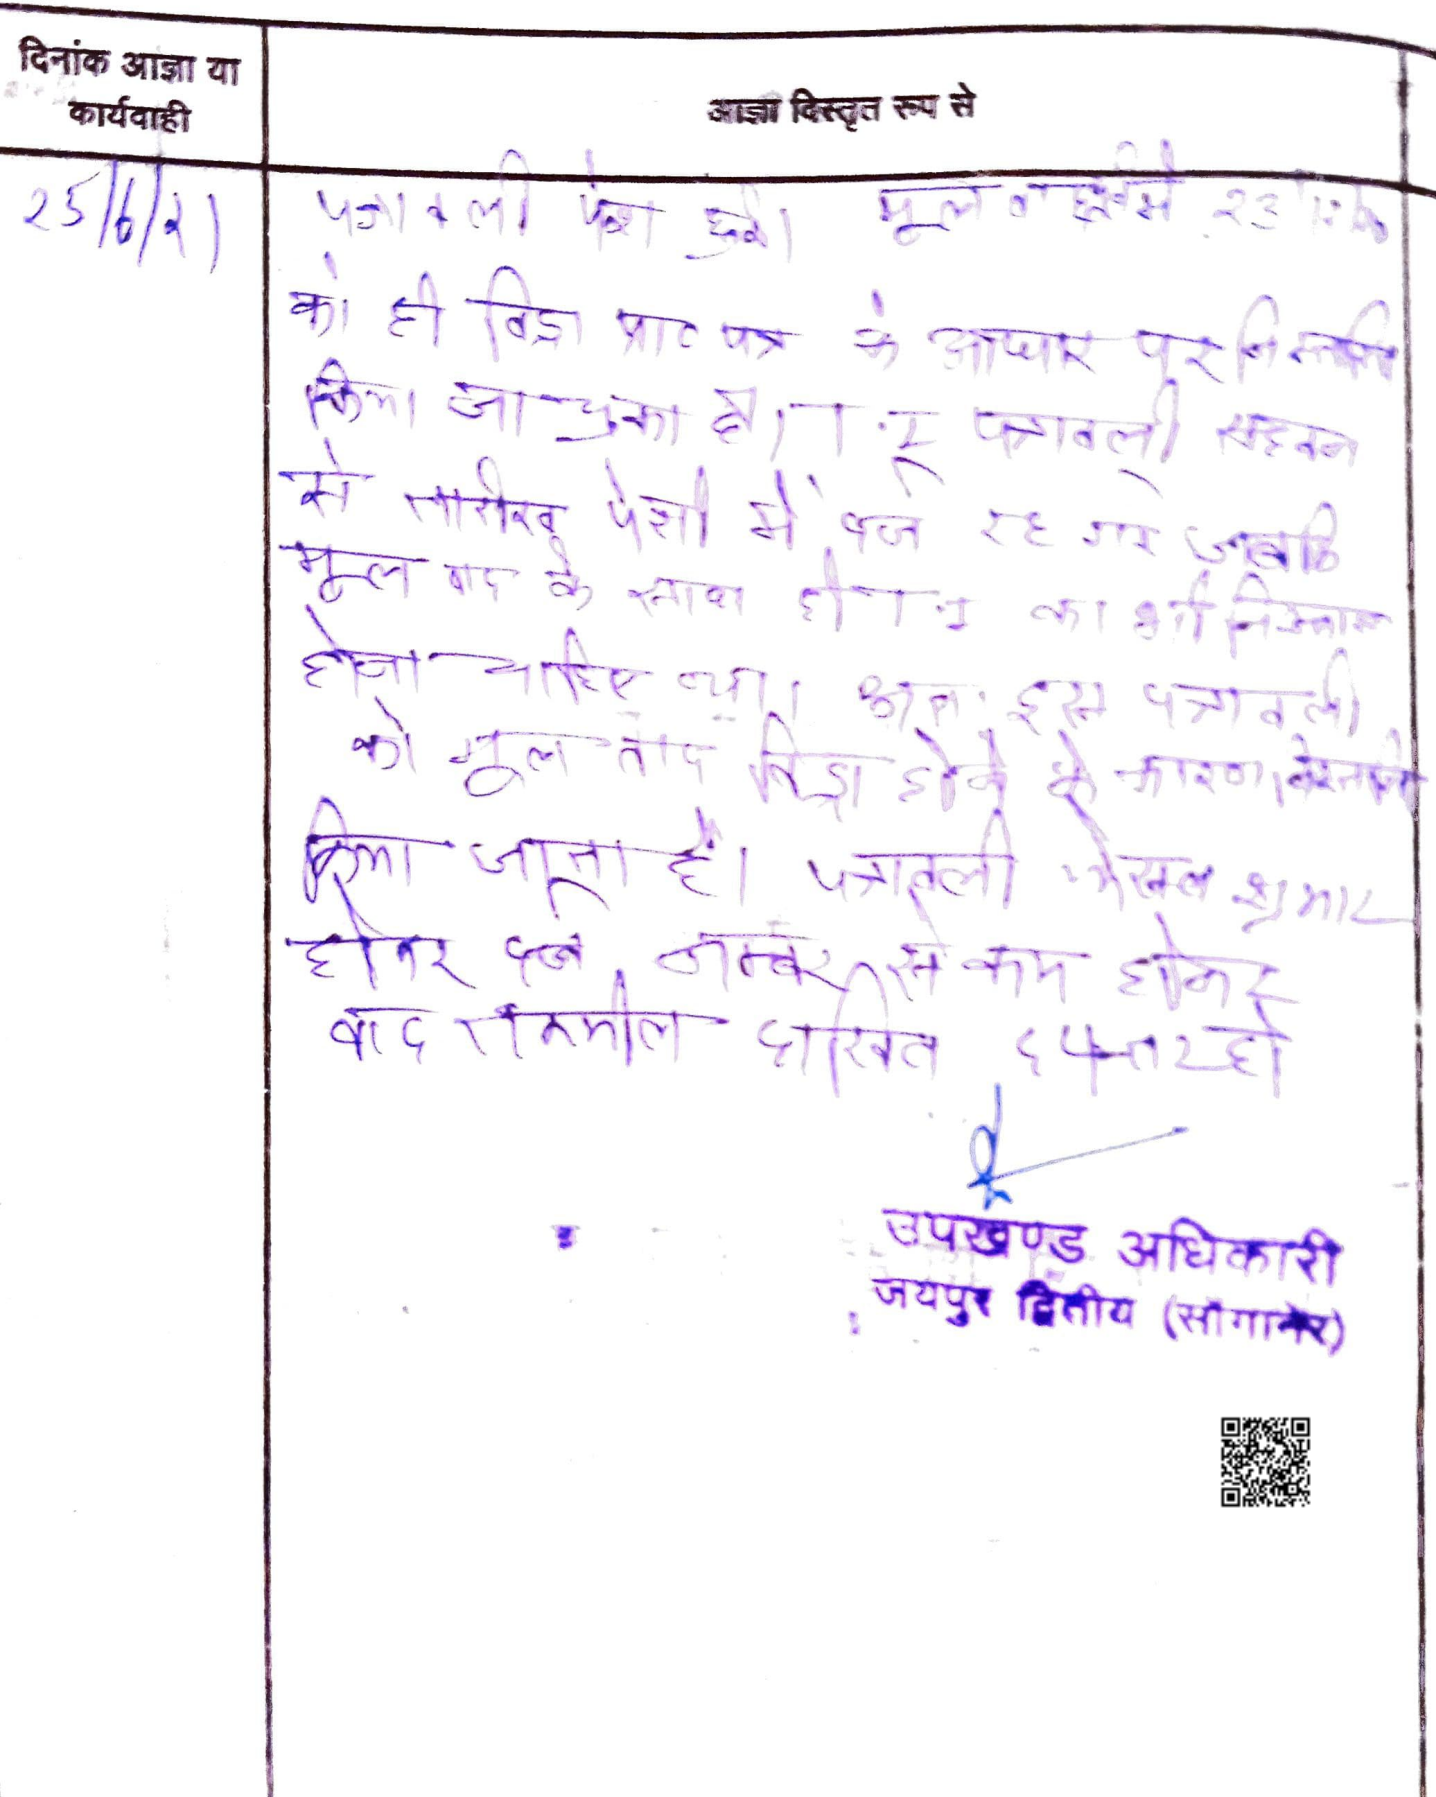 दिनांक आज्ञा या
कार्यवाही
आज्ञा विस्तृत रूप से
25/6/21
पत्रावली पेश हुई। मूल वाद में 23
को ही विड्रा प्रा० पत्र के आधार पर निस्तारित
किया जा चुका है। T.I पत्रावली सहवन
से तारीख पेशी में दर्ज रह गई जबकि
मूल वाद के साथ ही T.I का भी निस्तारण
होना चाहिए था। अतः इस पत्रावली
को मूल वाद विड्रा होने के कारण निस्तारित
किया जाता है। पत्रावली फैसल शुमार
होकर दर्ज नम्बर से कम होकर
बाद तकमील दाखिल दफ्तर हो
उपखण्ड अधिकारी
जयपुर द्वितीय (सांगानेर)